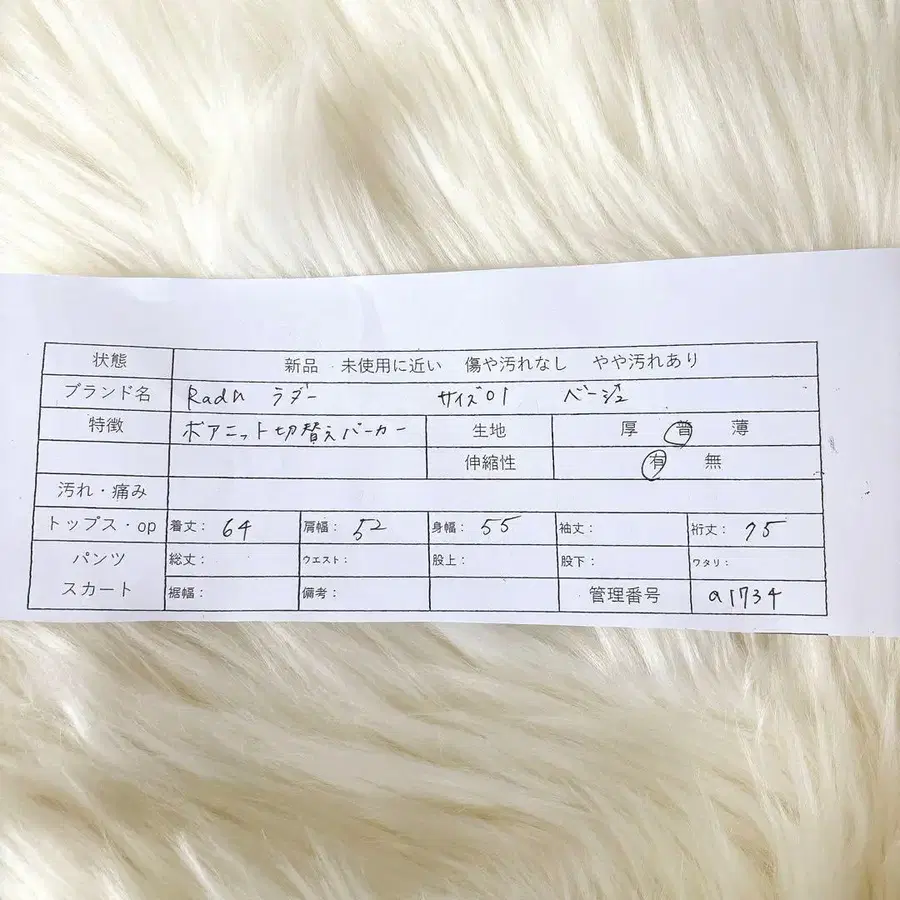 状態 新品 未使用に近い 傷や汚れなし やや汚れあり
ブランド名 Radn ラダー サイズ01 ベージュ
特徴 ボアニット切替えパーカー 生地 厚 普 薄
伸縮性 有 無
汚れ・痛み
トップス・op 着丈： 64 肩幅： 52 身幅： 55 袖丈： 裄丈： 75
パンツ 総丈： ウエスト： 股上： 股下： ワタリ：
スカート 裾幅： 備考： 管理番号 a1734